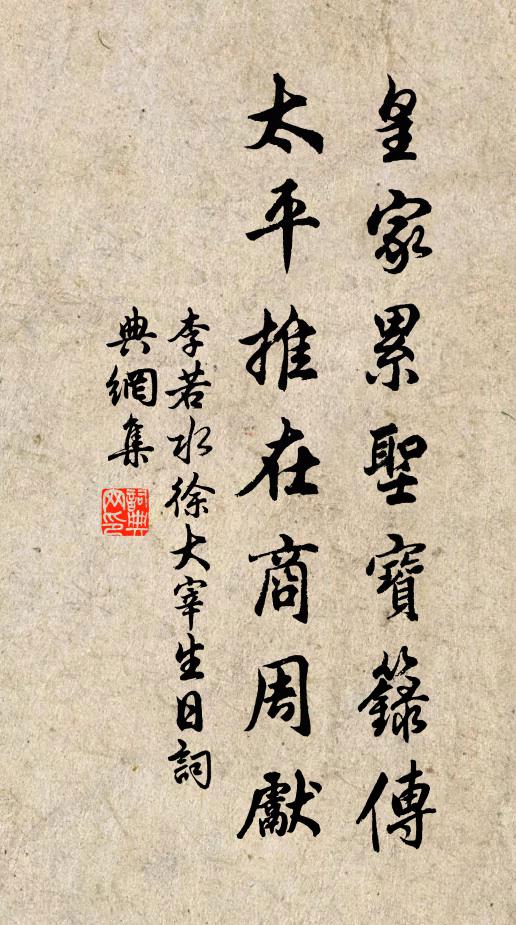 皇家累聖寶籙傳
太平推在商周獻
李若水徐大宰生日詞
典網集
詞典
网印